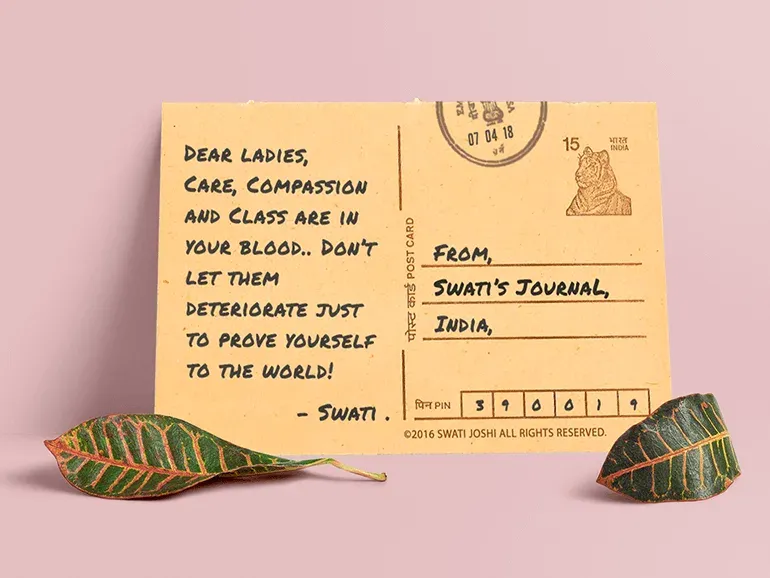 DEAR LADIES,
CARE, COMPASSION
AND CLASS ARE IN
YOUR BLOOD.. DON'T
LET THEM
DETERIORATE JUST
TO PROVE YOURSELF
TO THE WORLD!
- SWATI .
07 04 18
15
भारत
INDIA
पोस्ट कार्ड POST CARD
FROM,
SWATI'S JOURNAL,
INDIA,
पिन PIN 3 9 0 0 1 9
©2016 SWATI JOSHI ALL RIGHTS RESERVED.